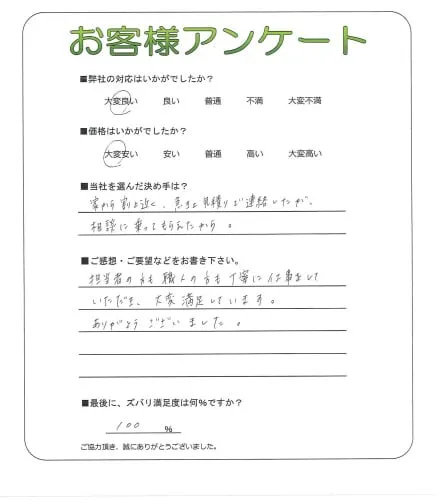 お客様アンケート
■弊社の対応はいかがでしたか？
大変良い 良い 普通 不満 大変不満
■価格はいかがでしたか？
大変安い 安い 普通 高い 大変高い
■当社を選んだ決め手は？
家から 見積りご連絡したが、
相談に乗ってもらえたから。
■ご感想・ご要望などをお書き下さい。
担当者の方も職人の方も丁寧に仕事をして
いただき、大変満足しています。
ありがとうございました。
■最後に、ズバリ満足度は何％ですか？
100 ％
ご協力頂き、誠にありがとうございました。